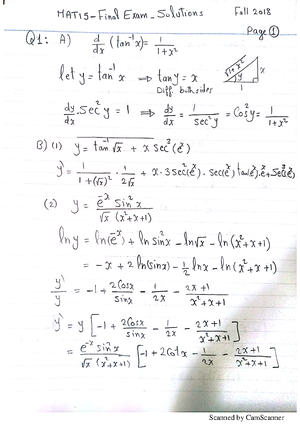 MAT15-Final Exam-Solutions Fall 2018
Page ①
Q1: A) d/dx (tan⁻¹x) = 1/(1+x²)
let y = tan⁻¹x ⟹ tan y = x
Diff. both sides
√(1+x²) x y 1
dy/dx sec²y = 1 ⟹ dy/dx = 1/sec²y = Cos²y = 1/(1+x²)
B) (1) y = tan⁻¹√x + x sec³(eˣ)
y' = 1/(1+(√x)²) · 1/(2√x) + x·3sec²(eˣ)·sec(eˣ) tan(eˣ).eˣ + sec³(eˣ)
(2) y = e⁻ˣ sin²x / (√x (x²+x+1))
ln y = ln(e⁻ˣ) + ln sin²x - ln√x - ln(x²+x+1)
= -x + 2 ln(sinx) - 1/2 lnx - ln(x²+x+1)
y'/y = -1 + 2Cosx/sinx - 1/2x - (2x+1)/(x²+x+1)
y' = y [-1 + 2Cosx/sinx - 1/2x - (2x+1)/(x²+x+1)]
= e⁻ˣ sin²x / (√x (x²+x+1)) [-1 + 2Cotx - 1/2x - (2x+1)/(x²+x+1)]
Scanned by CamScanner